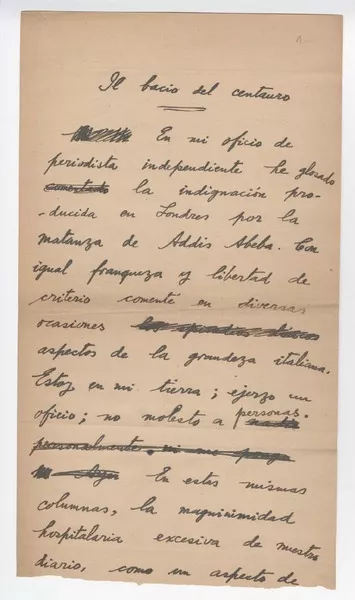 Il bacio del centauro
En mi oficio de
periodista independiente he glosado
comentado la indignación pro-
-ducida en Londres por la
matanza de Addis Abeba. Con
igual franqueza y libertad de
criterio comenté en diversas
ocasiones
aspectos de la grandeza italiana.
Estoy en mi tierra; ejerzo un
oficio; no molesto a personas.
personalmente, ni me
Ayer En estas mismas
columnas, la magnimidad
hospitalaria excesiva de nuestro
diario, como un aspecto de